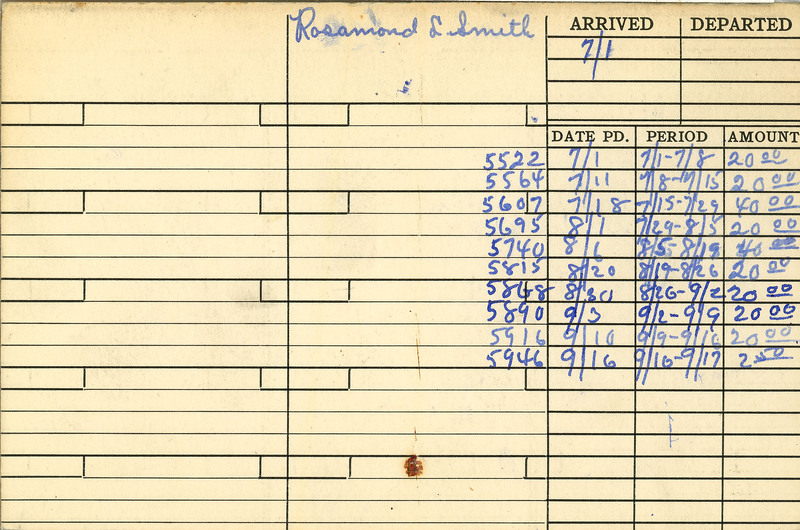 Rosamond L Smith ARRIVED DEPARTED
7/1
DATE PD. PERIOD AMOUNT
5522 7/1 7/1-7/8 20 00
5564 7/11 7/8-7/15 20 00
5607 7/18 7/15-7/29 40 00
5695 8/1 7/29-8/5 20 00
5740 8/6 8/5-8/19 40 00
5815 8/20 8/19-8/26 20 00
5848 8/30 8/26-9/2 20 00
5890 9/3 9/2-9/9 20 00
5916 9/10 9/9-9/16 20 00
5946 9/16 9/16-9/17 2 50